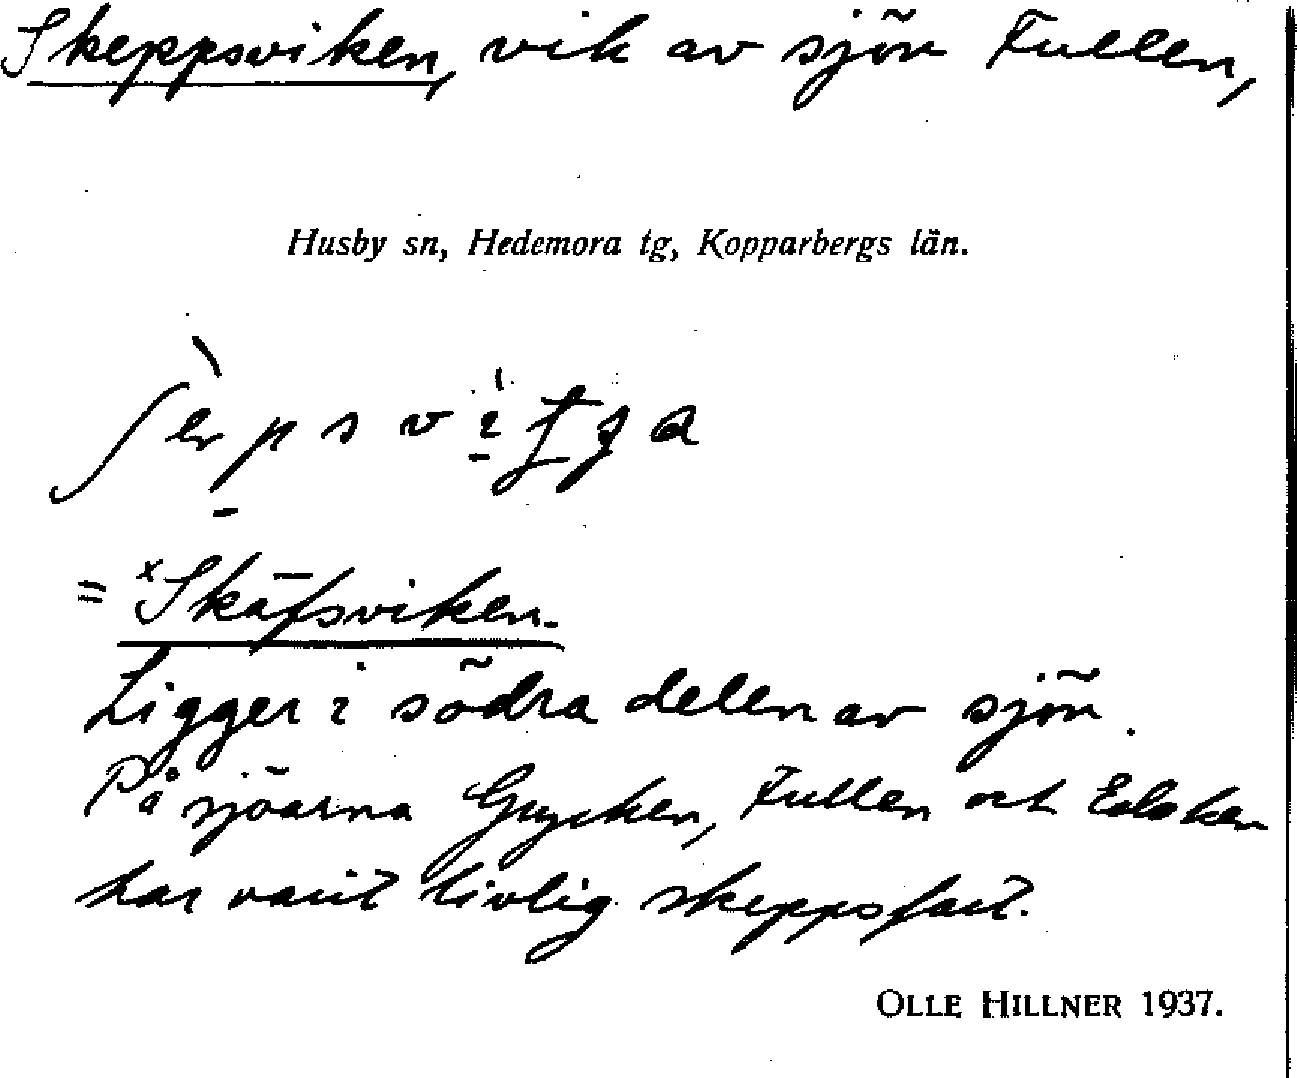 Skeppsviken, vik av sjön Fullen,
Husby sn, Hedemora tg, Kopparbergs län.
= ˣSkäpsviken.
Ligger i södra delen av sjön.
På sjöarna Grycken, Fullen och Edsken
har varit livlig skeppsfart.
OLLE HILLNER 1937.